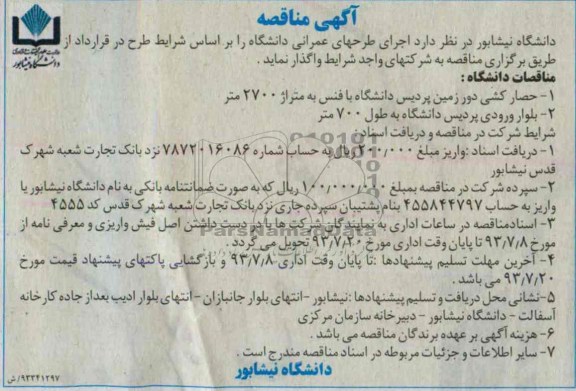 آگهی مناقصه
دانشگاه نیشابور
دانشگاه نیشابور در نظر دارد اجرای طرحهای عمرانی دانشگاه را بر اساس شرایط طرح در قرارداد از
طریق برگزاری مناقصه به شرکتهای واجد شرایط واگذار نماید .
مناقصات دانشگاه :
۱- حصار کشی دور زمین پردیس دانشگاه با فنس به متراژ ۲۷۰۰ متر
۲- بلوار ورودی پردیس دانشگاه به طول ۷۰۰ متر
شرایط شرکت در مناقصه و دریافت اسناد:
۱- دریافت اسناد :واریز مبلغ ۲۰۰/۰۰۰ ریال به حساب شماره ۷۸۷۲۰۱۶۰۸۶ نزد بانک تجارت شعبه شهرک
قدس نیشابور
۲- سپرده شرکت در مناقصه بمبلغ ۱۰۰/۰۰۰/۰۰۰ ریال که به صورت ضمانتنامه بانکی به نام دانشگاه نیشابور یا
واریز به حساب ۴۵۵۸۴۴۷۹۷ بنام پشتیبان سپرده جاری نزد بانک تجارت شعبه شهرک قدس کد ۴۵۵۵
۳- اسنادمناقصه در ساعات اداری به نمایندگان شرکت ها با در دست داشتن اصل فیش واریزی و معرفی نامه از
مورخ ۹۳/۷/۸ تا پایان وقت اداری مورخ ۹۳/۷/۲۰ تحویل می گردد .
۴- آخرین مهلت تسلیم پیشنهادها :تا پایان وقت اداری ۹۳/۷/۸ و بازگشایی پاکتهای پیشنهاد قیمت مورخ
۹۳/۷/۲۰ می باشد .
۵-نشانی محل دریافت و تسلیم پیشنهادها :نیشابور -انتهای بلوار جانبازان - انتهای بلوار ادیب بعداز جاده کارخانه
آسفالت - دانشگاه نیشابور - دبیرخانه سازمان مرکزی
۶- هزینه آگهی بر عهده برندگان مناقصه می باشد .
۷- سایر اطلاعات و جزئیات مربوطه در اسناد مناقصه مندرج است .
دانشگاه نیشابور
۹۳۲۴۱۲۹۷/ش
ParsNamadData